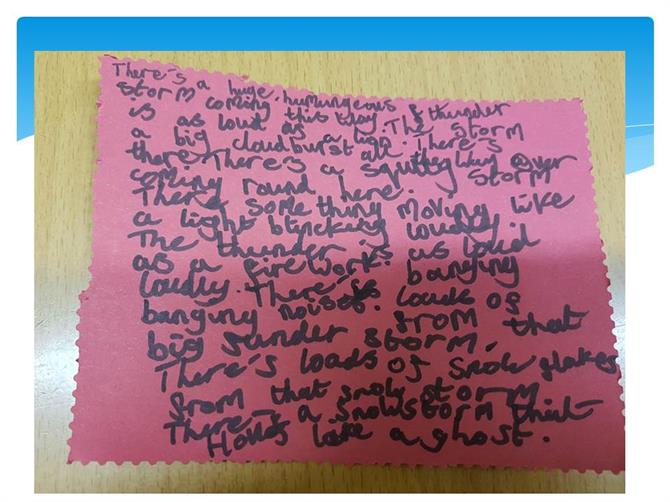 There's a huge, humungeous thunder
storm coming this way. The storm
is as loud as a lion. There's
a big cloudburst all over
there. There's a storm
coming round here.
There some thing moving like
a light blincking loudly.
The thunder is as loud
as a firework banging
loudly. There's
banging noises loads of
big sunder storm.
There's loads of snow flakes
from that snow storm
There's a snowstorm that
Howls like a ghost.